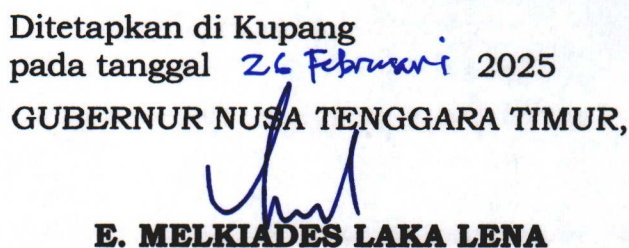 Ditetapkan di Kupang
pada tanggal 26 Februari 2025
GUBERNUR NUSA TENGGARA TIMUR,
E. MELKIADES LAKA LENA